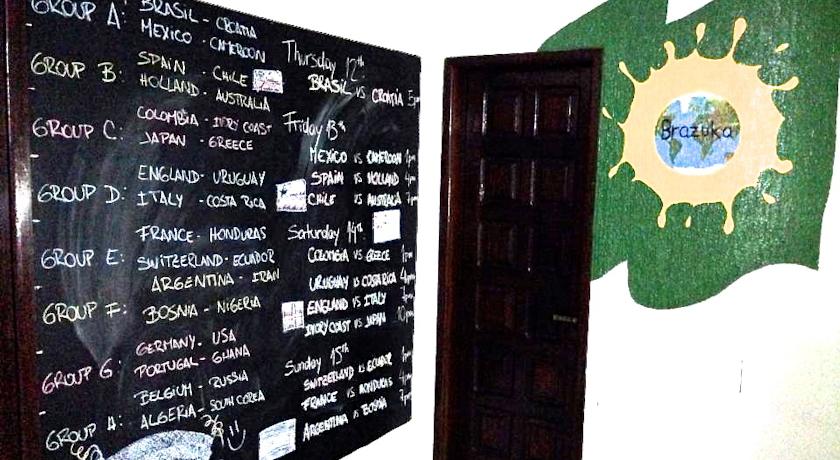 GROUP A: BRASIL - CROATIA
MEXICO - CAMEROON
GROUP B: SPAIN - CHILE
HOLLAND - AUSTRALIA
GROUP C: COLOMBIA - IVORY COAST
JAPAN - GREECE
GROUP D: ENGLAND - URUGUAY
ITALY - COSTA RICA
GROUP E: FRANCE - HONDURAS
SWITZERLAND - ECUADOR
GROUP F: ARGENTINA - IRAN
BOSNIA - NIGERIA
GROUP G: GERMANY - USA
PORTUGAL - GHANA
GROUP H: BELGIUM - RUSSIA
ALGERIA - SOUTH COREA
Thursday 12th
BRASIL vs CROATIA 5pm
Friday 13th
MEXICO vs CAMEROON 1pm
SPAIN vs HOLLAND 4pm
CHILE vs AUSTRALIA 7pm
Saturday 14th
COLOMBIA vs GREECE 1pm
URUGUAY vs COSTA RICA 4pm
ENGLAND vs ITALY
IVORY COAST vs JAPAN 10pm
Sunday 15th
SWITZERLAND vs ECUADOR 1pm
FRANCE vs HONDURAS 4pm
ARGENTINA vs BOSNIA 7pm
Brazuka